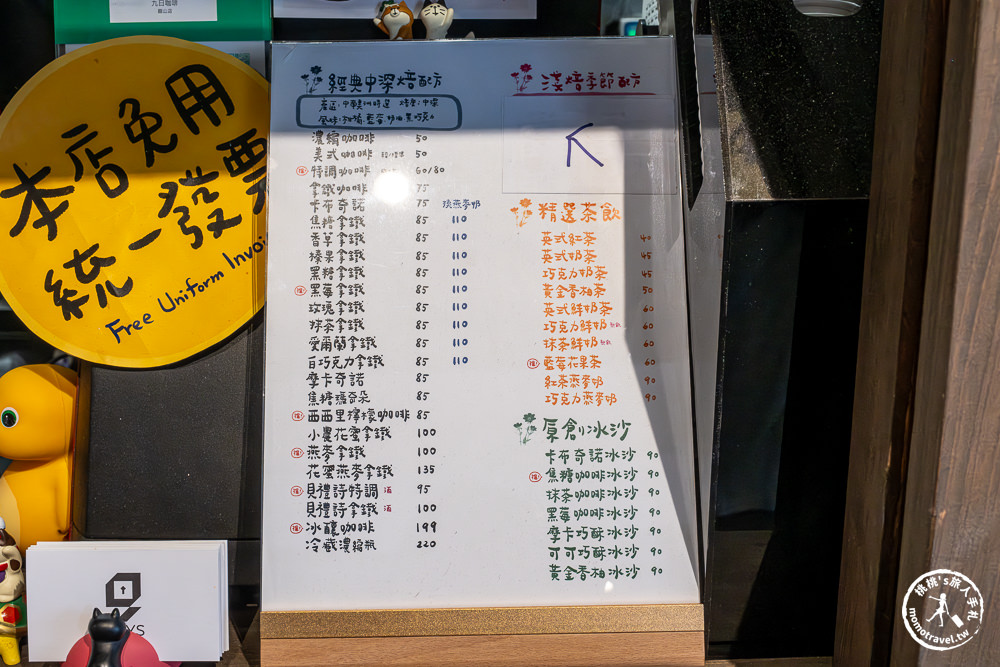 九日咖啡
本店免用
統一發票
Free Uniform Invoi
經典中深焙配方
濃縮咖啡 50
美式咖啡 50
推 特調咖啡 60/80
拿鐵咖啡 75
卡布奇諾 75 換燕麥奶
焦糖拿鐵 85 110
香草拿鐵 85 110
榛果拿鐵 85 110
黑糖拿鐵 85 110
推 黑莓拿鐵 85 110
玫瑰拿鐵 85 110
抹茶拿鐵 85 110
愛爾蘭拿鐵 85 110
白巧克力拿鐵 85 110
摩卡奇諾 85
焦糖瑪奇朵 85
推 西西里檸檬咖啡 85
小農花蜜拿鐵 100
推 燕麥拿鐵 100
花蜜燕麥拿鐵 135
推 貝禮詩特調 酒 95
貝禮詩拿鐵 酒 100
推 冰釀咖啡 199
冷藏濃縮瓶 220
淺焙季節配方
精選茶飲
英式紅茶 40
英式奶茶 45
巧克力奶茶 45
黃金香柚茶 50
英式鮮奶茶 60
巧克力鮮奶 60
抹茶鮮奶 60
推 藍莓花果茶 60
紅茶燕麥奶 90
巧克力燕麥奶 90
原創冰沙
卡布奇諾冰沙 90
推 焦糖咖啡冰沙 90
抹茶咖啡冰沙 90
黑莓咖啡冰沙 90
摩卡巧酥冰沙 90
可可巧酥冰沙 90
黃金香柚冰沙 90
YS
桃桃's旅人手札
momotravel.tw